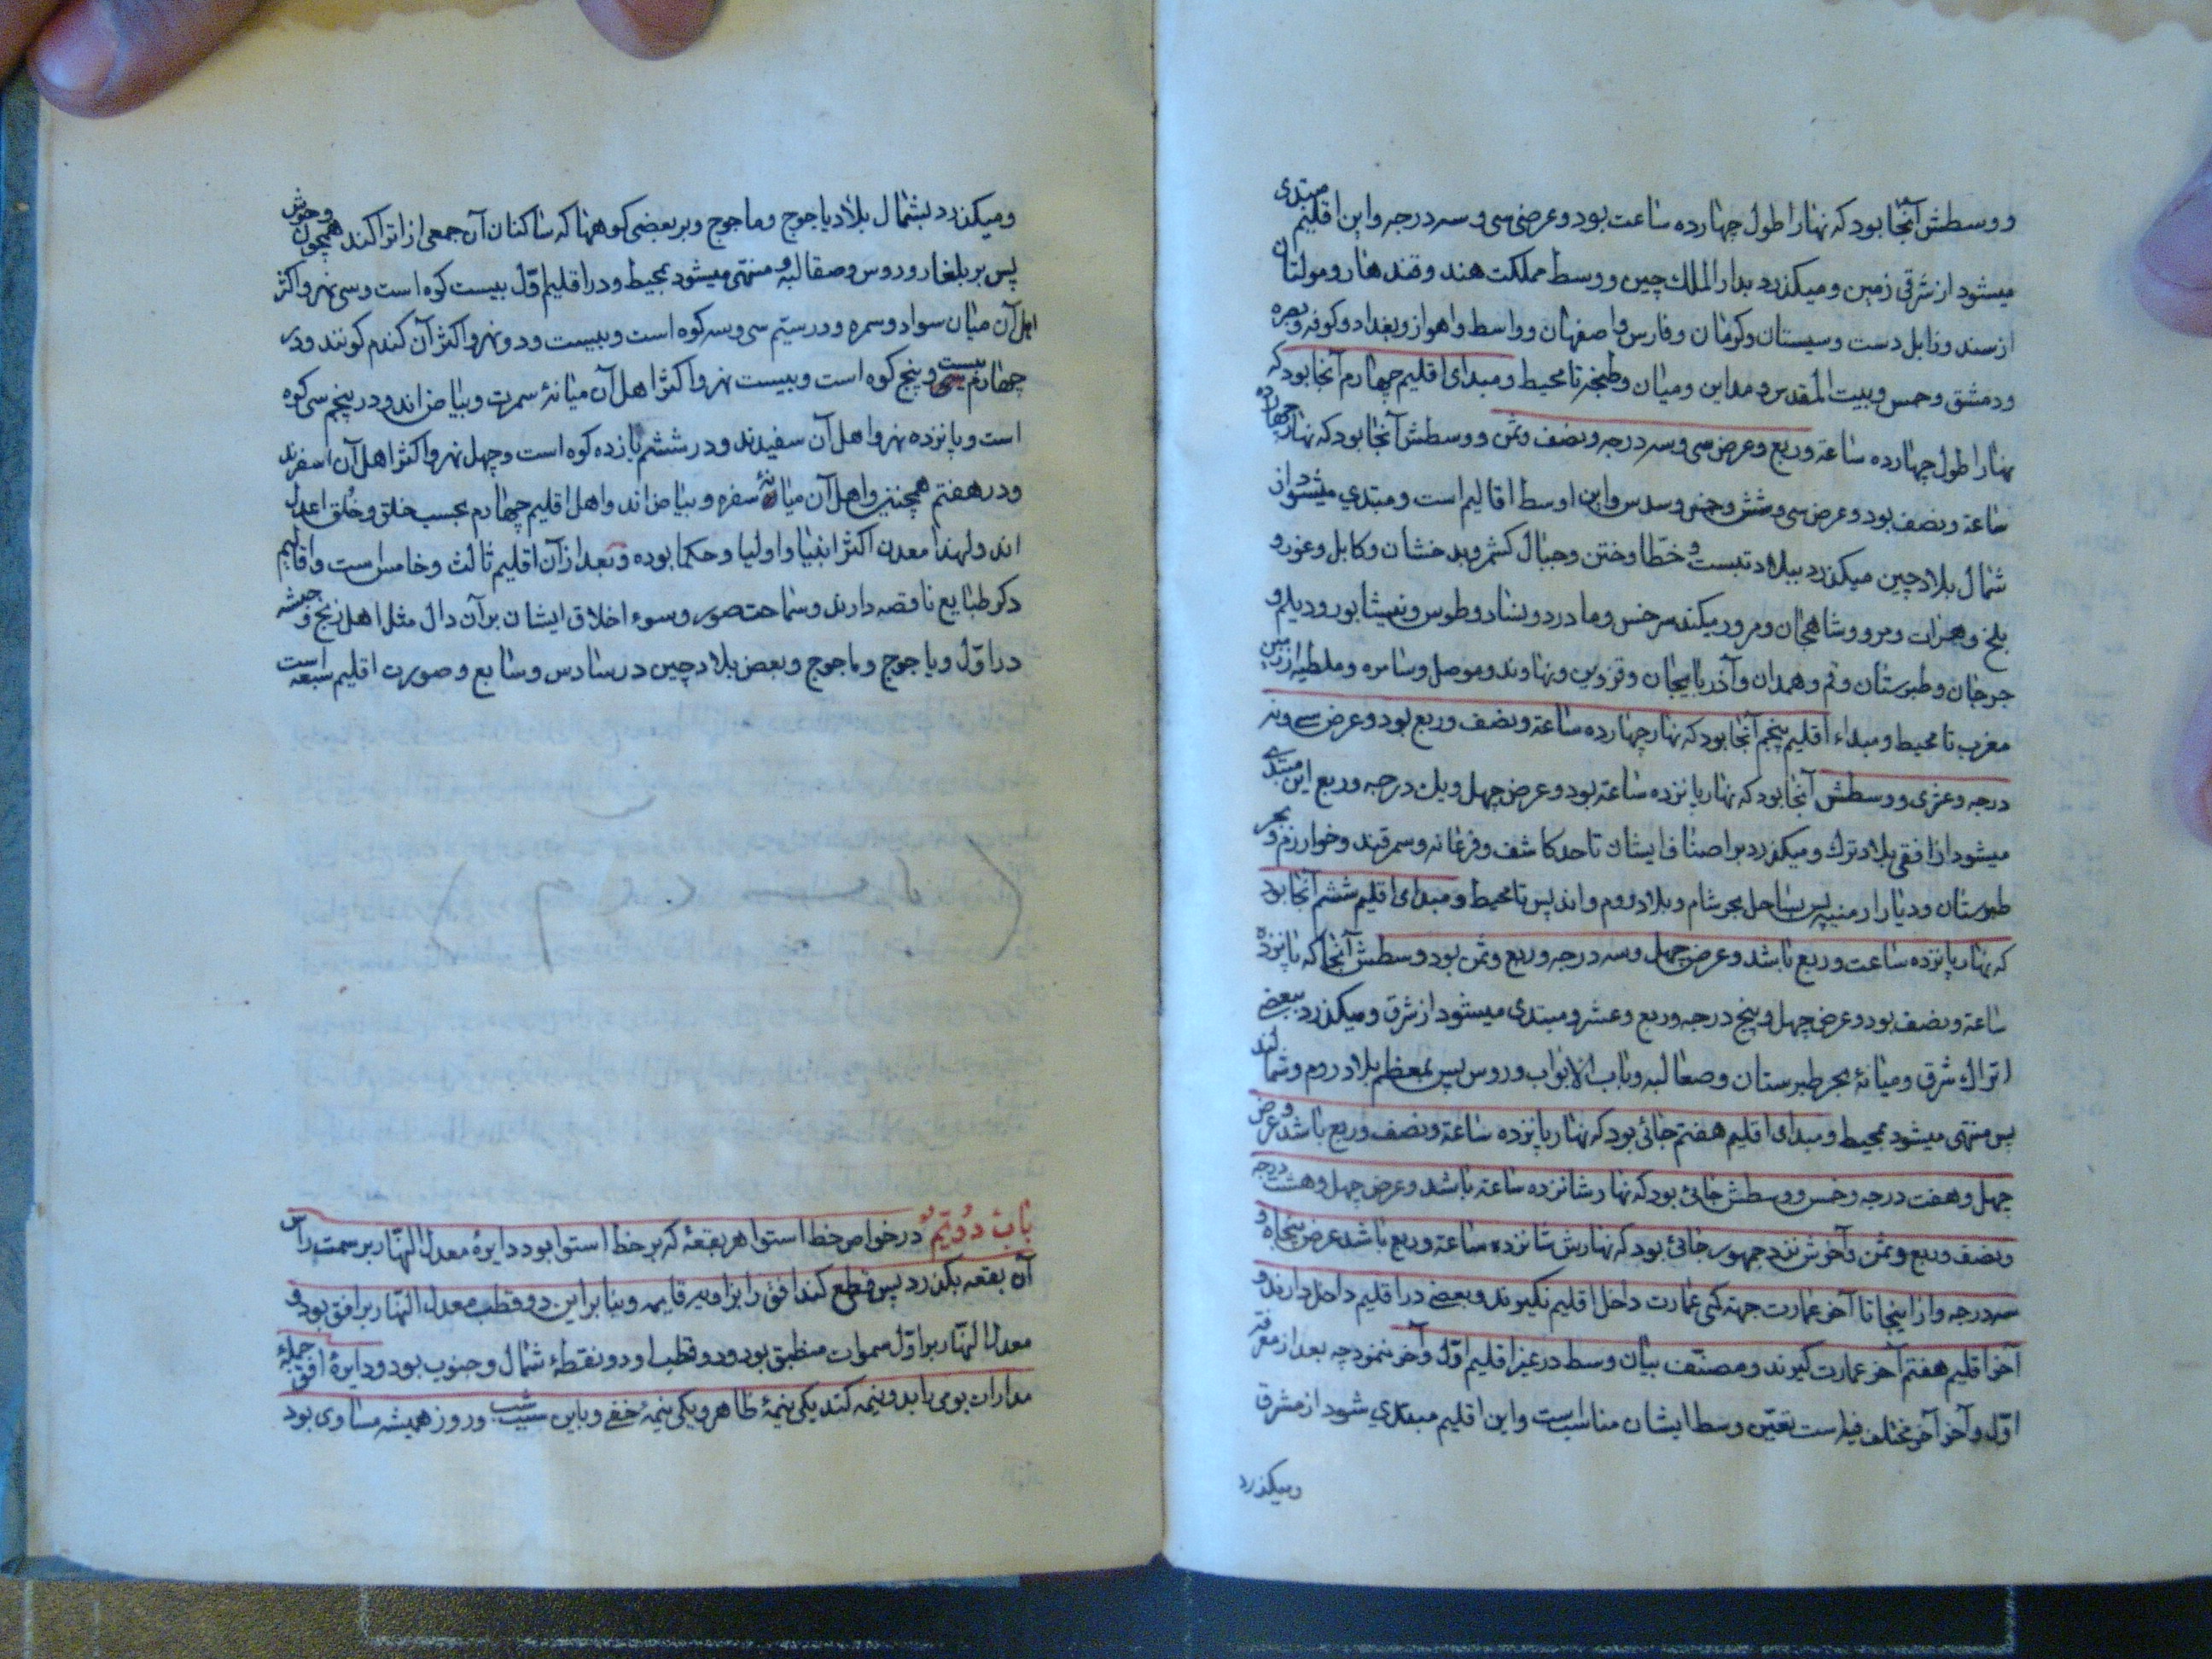 و وسطش آنجا بود که نهار اطول چهارده ساعت بود و عرض سی و سه درجه و این اقلیم مبتدی
میشود از شرقی زمین و میکذرد بدار الملک چین و وسط مملکت هند و قندهار و مولتان
از سند و زابل دست و سیستان و کرمان و فارس و اصفهان و واسط و اهواز و بغداد و کوفه و بصره
و دمشق و حمس و بیت المقدس و مداین و میان و طنجه تا محیط و مبدای اقلیم چهارم آنجا بود که
نهار اطول چهارده ساعة و ربع و عرض سی و سه درجه و نصف و ثمن و وسطش آنجا بود که نهار چهارده
ساعة و نصف بود و عرض سی و شش و خمس و سدس و این اوسط اقالیم است و مبتدی میشود از
شمال بلاد چین میکذرد ببلاد تبست و خطا و ختن و جبال کشمر و بدخشان و کابل و غور و
بلخ و هرات و مرو و شاهجان و مرور میکند سرخس و ما درد و نسار و طوس و نیشابور و دیلم و
جرجان و طبرستان و قم و همدان و آذربایجان و قزوین و نهاوند و موصل و سامره و ملطیه از زمین
مغرب تا محیط و مبداء اقلیم پنجم آنجا بود که نهار چهارده ساعة و نصف و ربع بود و عرض سی و نه
درجه و عزی و وسطش آنجا بود که نهار پانزده ساعة بود و عرض چهل و یک درجه و ربع این مبتدی
میشود از افقی بلاد ترک و میکذرد بر اصناف ایشان تا حد کاشف و فرغانه و سمرقند و خوارزم و بحر
طبرستان و دیار ارمنیه پس بساحل بحر شام و بلاد روم و اندلس تا محیط و مبدای اقلیم ششم آنجا بود
که نهار پانزده ساعت و ربع باشد و عرض چهل و سه درجه و ربع و ثمن بود و وسطش آنجا که پانزده
ساعة و نصف بود و عرض چهل و پنج درجه و ربع و عشر و مبتدی میشود از شرق و میکذرد ببعضی
اتراک شرق و میانهٔ بحر طبرستان و صعالبه و باب الابواب و روس پس بمعظم بلاد روم و شمال
پس منتهی میشود بمحیط و مبدای اقلیم هفتم جائی بود که نهار پانزده ساعة و نصف و ربع باشد و عرض
چهل و هفت درجه و خمس و وسطش جائی بود که نهار شانزده ساعة باشد و عرض چهل و هشت درجه
و نصف و ربع و ثمن و آخرش نزد جمهور جائی بود که نهارش شانزده ساعة و ربع باشد عرض پنجاه و
سه درجه و از اینجا تا آخر عمارت جهته کمی عمارت داخل اقلیم نکیرند و بعضی در اقلیم داخل دارند و
آخر اقلیم هفتم آخر عمارت کیرند و مصنف بیان وسط در غیر اقلیم اول و آخر ننمود چه بعد از معرفة
اول و آخر آخر مختلف فیه است تعین وسط ایشان مناسب است و این اقلیم مبتدی شود از مشرق
و میکذرد
و میکذرد بشمال بلاد یاجوج و ماجوج و بر بعضی کوهها که ساکنان آن جمعی از اتراکند همچون وحوش
پس بر بلغار و روس و صقالبه و منتهی میشود بمحیط و در اقلیم اول بیست کوه است و سی نهر و اکثر
اهل آن میان سواد و سمره و در سیم سی و سه کوه است و بیست و دو نهر و اکثر آن کندم کونند و در
چهارم بیست و پنج کوه است و بیست نهر و اکثر اهل آن میانهٔ سمرت و بیاض اند و در پنجم سی کوه
است و پانزده نهر و اهل آن سفیدند و در ششم یازده کوه است و چهل نهر و اکثر اهل آن اسفرند
و در هفتم همچنین و اهل آن میانهٔ سفره و بیاض اند و اهل اقلیم چهارم بحسب خلق و خُلق اعدل
اند و لهذا معدن اکثر انبیا و اولیا و حکما بوده و بعد از آن اقلیم ثالث و خامس است و اقالیم
دکر طبایع ناقصه دارند و سماحت صور و سوء اخلاق ایشان بر آن دال مثل اهل زنج و حبشه
در اول و یاجوج و ماجوج و بعض بلاد چین در سادس و سابع و صورت اقلیم سبعه است
باب دُویّم در خواص خط استوا هر بقعهٔ که بر خط استوا بود دایرهٔ معدل النهار بر سمت راس
آن بقعه بکذرد پس قطع کند افق را بزاویه قایمه و بنابر این دو قطب معدل النهار بر افق بود و
معدل النهار بر اول سموات منطبق بود و دو قطب او دو نقطهٔ شمال و جنوب بود و دایرهٔ افق جملهٔ
مدارات یومی را بدو نیمه کند یکی نیمهٔ ظاهر و یکی نیمهٔ خفی و باین سبب شب و روز همیشه مساوی بود